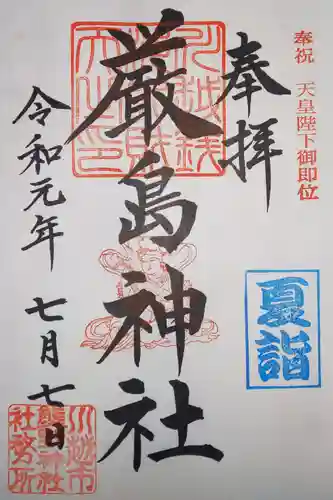 奉祝 天皇陛下御即位
奉拝
夏詣
厳島神社
令和元年 七月七日
川越市
熊野神社
社務所